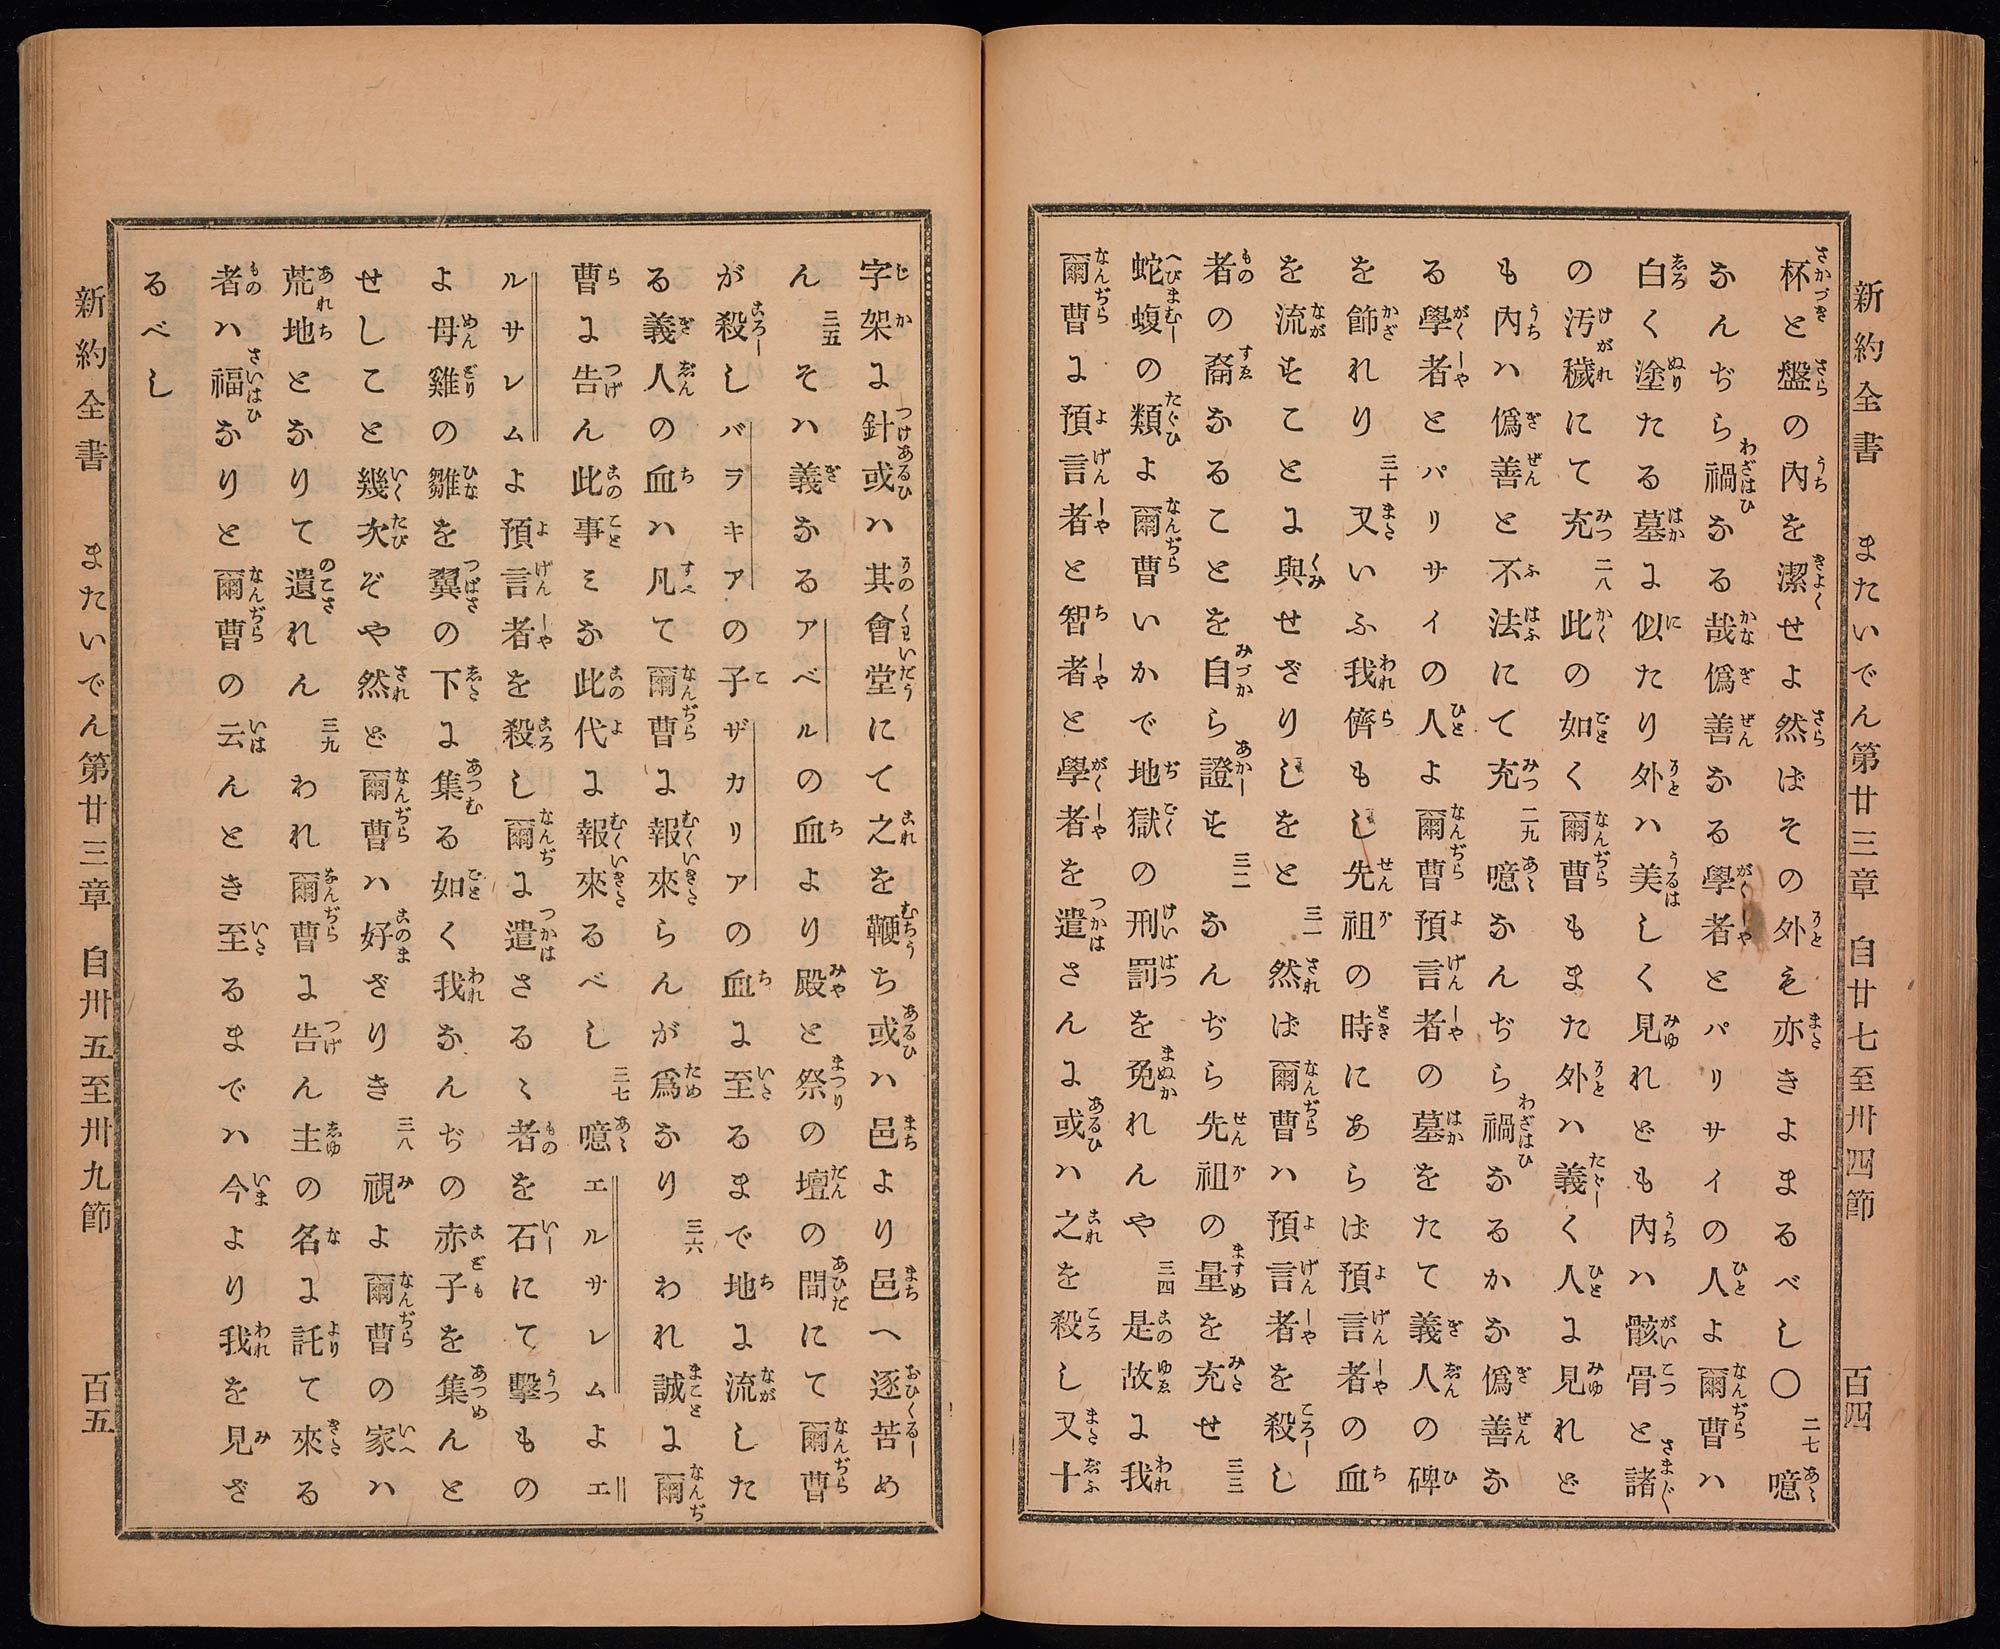 新約全書　またいでん第廿三章　自廿七至卅四節　百四
杯と盤の内を潔せよ然ばその外も亦きよまるべし〇 二七 噫
なんぢら禍なる哉僞善なる學者とパリサイの人よ爾曹ハ
白く塗たる墓に似たり外ハ美しく見れども内ハ骸骨と諸
の汚穢にて充 二八 此の如く爾曹もまた外ハ義く人に見れど
も内ハ僞善と不法にて充 二九 噫なんぢら禍なるかな僞善な
る學者とパリサイの人よ爾曹預言者の墓をたて義人の碑
を飾れり 三十 又いふ我儕もし先祖の時にあらば預言者の血
を流すことに與せざりしをと 三一 然ば爾曹ハ預言者を殺し
者の裔なることを自ら證す 三二 なんぢら先祖の量を充せ 三三
蛇蝮の類よ爾曹いかで地獄の刑罰を免れんや 三四 是故に我
爾曹に預言者と智者と學者を遣さんに或ハ之を殺し又十
字架に針或ハ其會堂にて之を鞭ち或ハ邑より邑へ逐苦め
ん 三五 そハ義なるアベルの血より殿と祭の壇の間にて爾曹
が殺しバラキアの子ザカリアの血に至るまで地に流した
る義人の血ハ凡て爾曹に報來らんが爲なり 三六 われ誠に爾
曹に告ん此事ミな此代に報來るべし 三七 噫エルサレムよエ
ルサレムよ預言者を殺し爾に遣さるゝ者を石にて擊もの
よ母雞の雛を翼の下に集る如く我なんぢの赤子を集んと
せしこと幾次ぞや然ど爾曹ハ好ざりき 三八 視よ爾曹の家ハ
荒地となりて遺れん 三九 われ爾曹に告ん主の名に託て來る
者ハ福なりと爾曹の云んとき至るまでハ今より我を見ざ
るべし
新約全書　またいでん第廿三章　自卅五至卅九節　百五